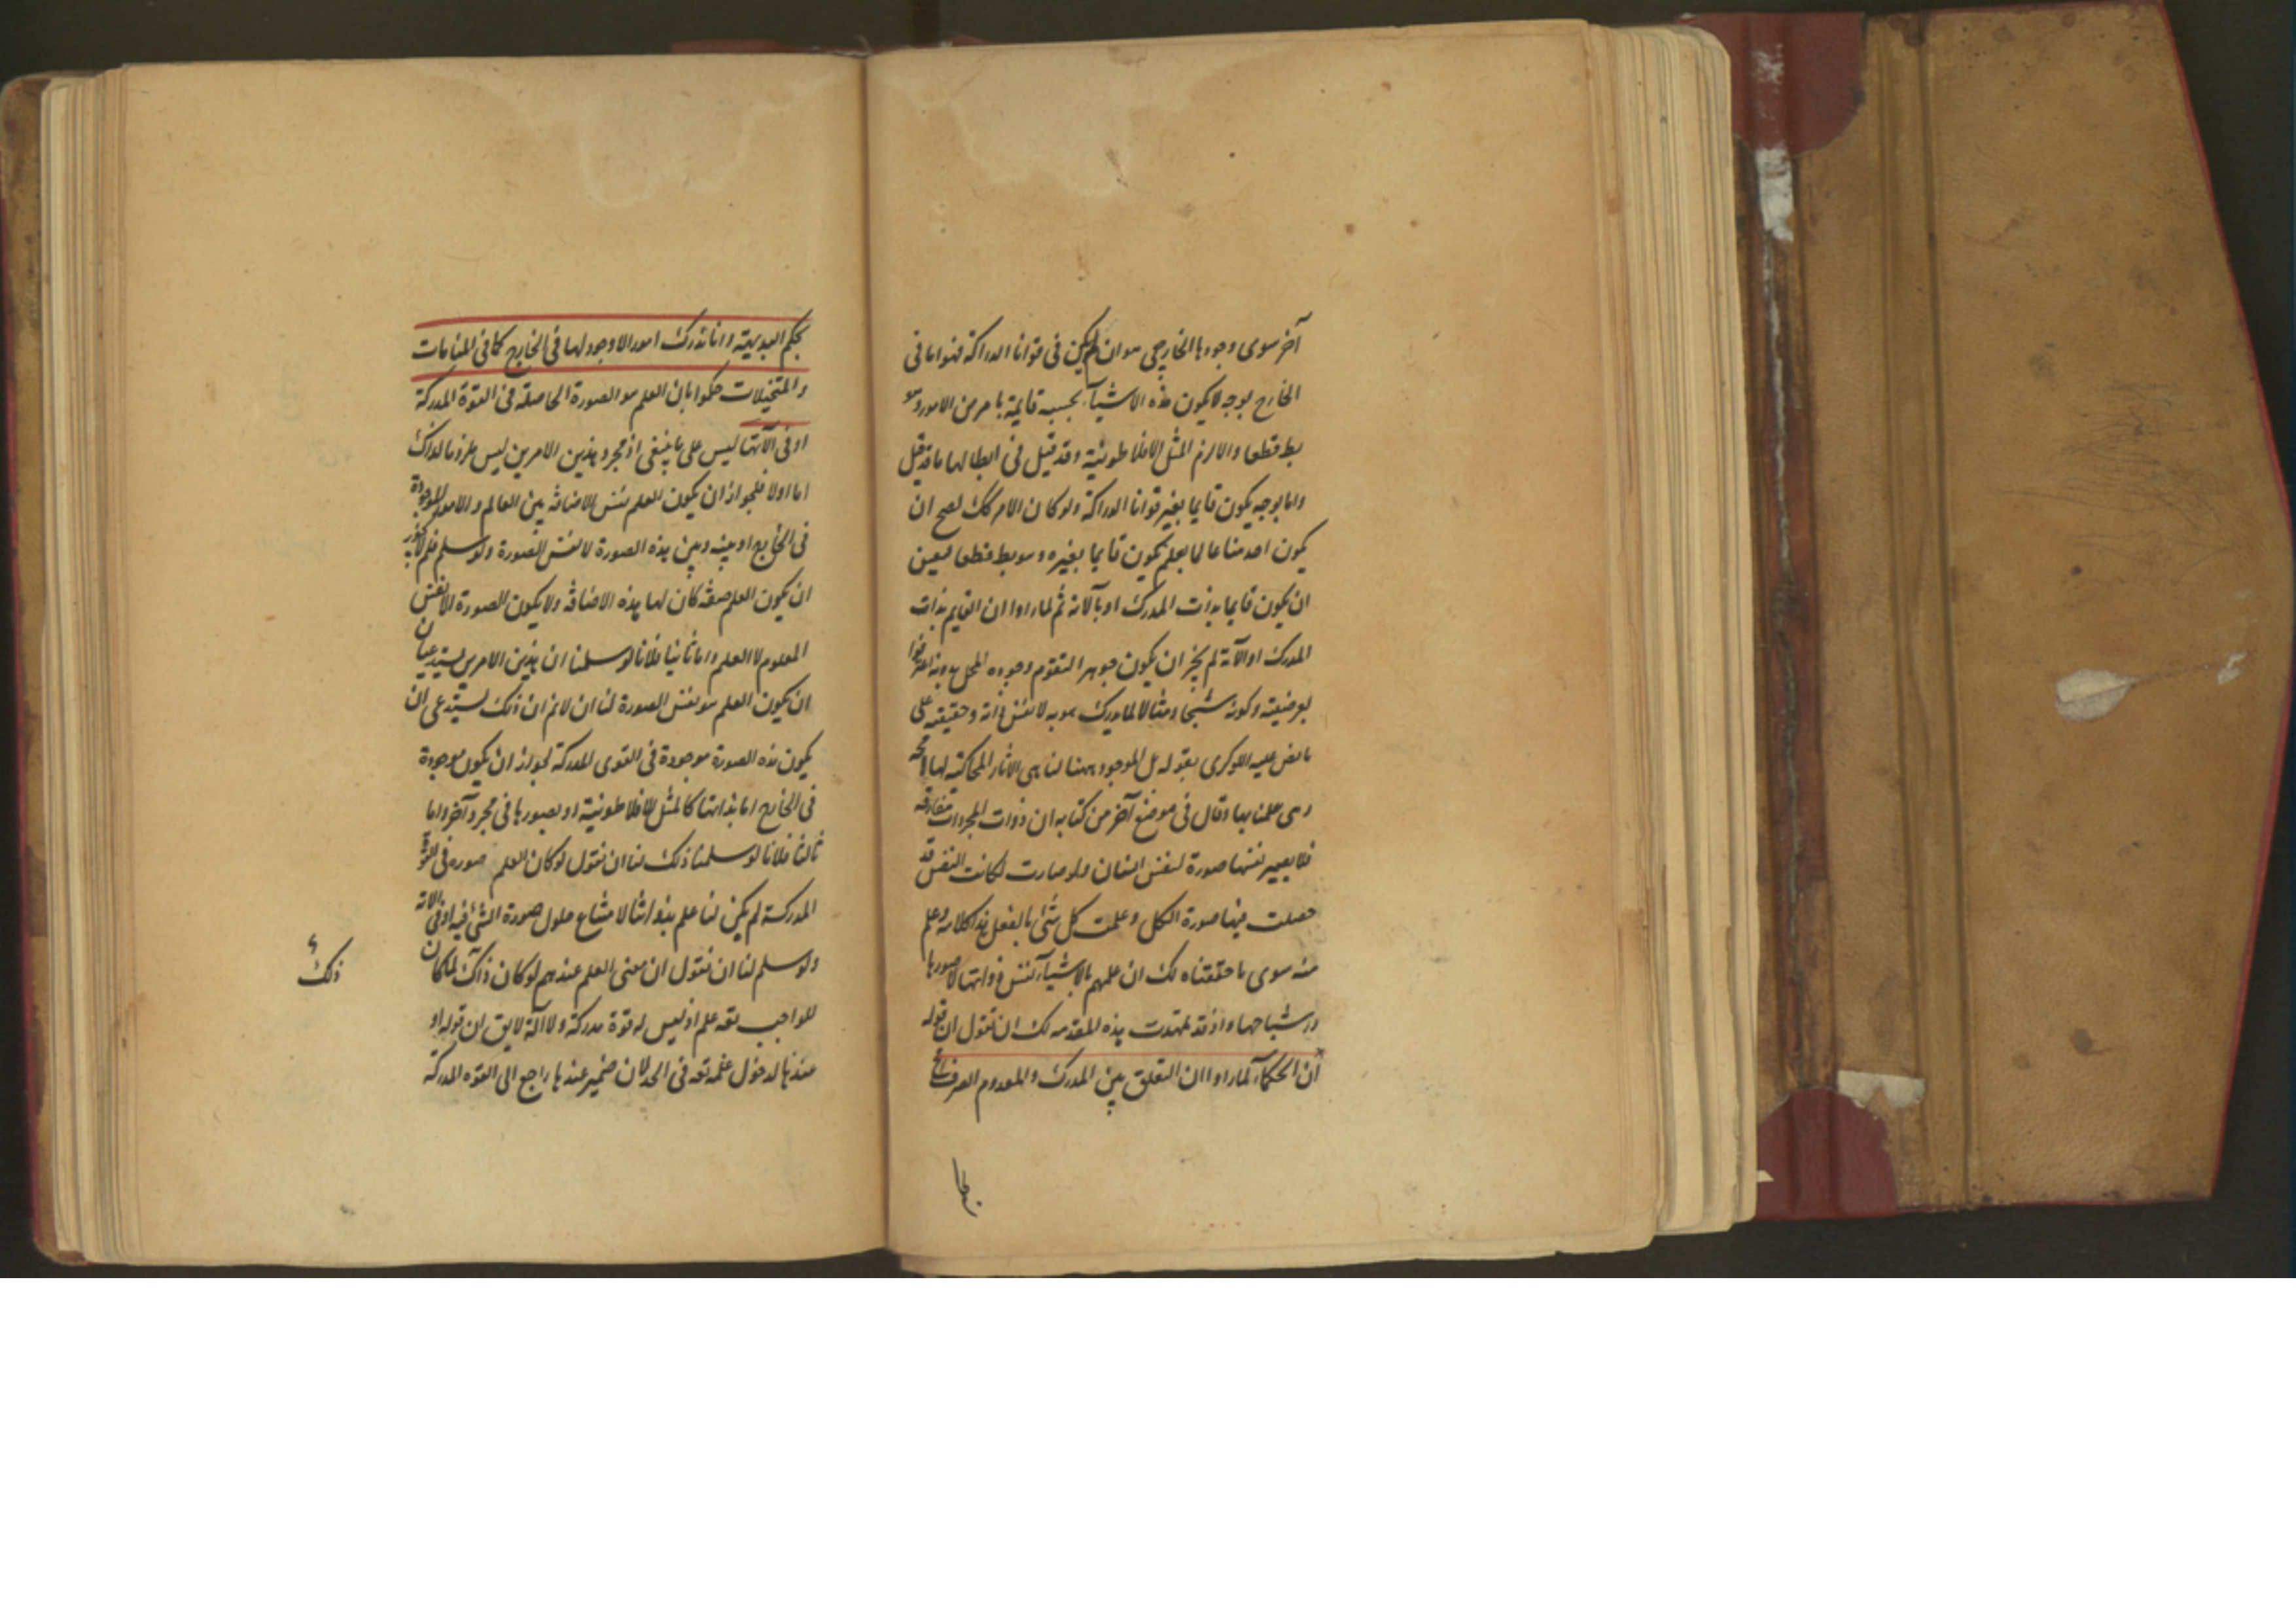 آخر سوى وجودها الخارجى سواء ان لم يكن فى قوانا الدراكة فهو اما فى
الخارج بوجه لا يكون هذه الاشيآء بحسبه قايمة بامر من الامور وهو
بط قطعا والا لزم المثل الافلاطونية وقد قيل فى ابطالها ما قد قيل
واما بوجه يكون قايما بغير قوانا الدراكة ولو كان الامر كك لصح ان
يكون احد منا عالما بعلم يكون قايما بغيره وهو بط قطعا فيعين
ان يكون قايما بذات المدرك او بآلاته ثم لما راوا ان القايم بذات
المدرك او الآته لم يجز ان يكون جوهرا لتقوم وجوده المحل بدونه اعترفوا
بعرضيته وكونه شبحا ومثالا لما يدرك هو به لا نفس ذاته وحقيقته على
ما نص عليه اللوكرى بقوله بل الموجود ههنا لنا هى الاثار المحاكية لها لا محه
وهى علمنا بها وقال فى موضع آخر من كتابه ان ذوات المجردات مفارقه
فلا يصير نفسها صورة لنفس انسان ولو صارت لكانت النفس قد
حصلت فيها صورة الكل وعلمت كل شئ بالفعل هذا كلامه وعلم
منه سوى ما حققناه لك ان علمهم بالاشيآء لنفس ذواتها لا صورها
واشباحها واذ قد تمهدت هذه المقدمه لك ان نقول ان قوله
ان الحكمآء لما راوا ان التعلق بين المدرك والمعدوم الصرف مح
بحكم
بحكم البديهية وانا ندرك امورا لا وجود لها فى الخارج كما فى المنامات
والمتخيلات حكموا بان العلم هو الصورة الحاصلة فى القوة المدركة
او فى آلاتها ليس على ما ينبغى اذ مجرد هذين الامرين ليس ملزوما لذاك
اما اولا فلجواز ان يكون العلم نفس الاضافة بين العالم والامور الموجودة
فى الخارج او بينه وبين هذه الصورة لا نفس الصورة ولو سلم فلم لا يجوز
ان يكون العلم صفة كان لها هذه الاضافة ولا يكون الصورة الا نفس
المعلوم لا العلم واما ثانيا فلانا لو سلمنا ان هذين الامرين يستدعيان
ان يكون العلم هو نفس الصورة لنا ان لا نم ان ذلك يستدعى ان
يكون هذه الصورة موجودة فى القوى المدركة لجواز ان يكون موجودة
فى الخارج اما بذاتها كالمثل الافلاطونية او بصورها فى مجرد آخر واما
ثالثا فلانا لو سلمنا ذلك لنا ان نقول لو كان العلم صوره فى القوة
المدركة لم يكن لنا علم بذواتنا لامتناع حلول صورة الشئ فيه او فى الاته
ولو سلم لنا ان نقول ان معنى العلم عندهم لو كان ذاك لما كان
للواجب تعه علم اذ ليس له قوة مدركة ولا آلة لا يق ان قوله او
عندها لدخول علمه تعه فى الحد لان ضمير عندها راجع الى القوه المدركة
ذلك